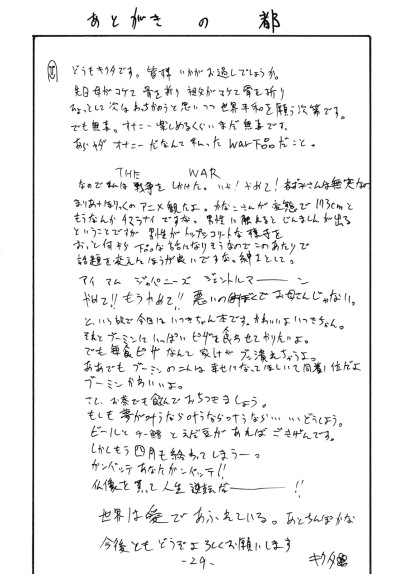 あとがきの都
どうもキクタです。皆様いかがお過しでしょうか。
先日母がコケて骨を折り 祖父がコケて骨を折り
ひょっとして次はわさかのうと思いつつ世界平和を願う次第です。
でも無事。オナニー楽しめるくらいまだ無事です。
あらヤダ オナニーだなんて私ったら下品だこと。
THE WAR
なので私は戦争をしかけた。いや！やめて！
まりあ†ほりっくのアニメ観たよ。かなこさんが変態で173cmと
もうなんかタマラナイですな。男性に触れるとじんましんが出る
ということですが 男性が
おっと何やら下品な話になりそうなのでこのあたりで
話題を変えたほうが良いですな。紳士として。
アイ アム ジャパニーズ ジェントルマーーン
やめて!! もうやめて!! 悪いのは お母さんじゃない。
という訳で今日はいつきちゃん本です。かわいいよいつきちゃん。
それとブーミンにいっぱいピザを食らわせてやりたいよ。
でも毎食ピザなんて家計がブッ潰えちゃうよ。
ああでもブーミンのコんは幸せになってほしいて同着1位だよ
ブーミンかわいいよ。
さて、お茶でも飲んでおちつきましょう。
もしも夢が叶うなら叶うなら叶うなら…いいどうしよう。
ビールとチー鱈とえだ豆があればごきげんです。
しかしもう四月も終わってしまうーっ。
ガンバッテ あなたガンバッテ!!
仏像を買って人生逆転だーーー!!
世界は愛であふれている。あとちんぽかな
今後ともどうぞよろしくお願いします
キクタ
-29-